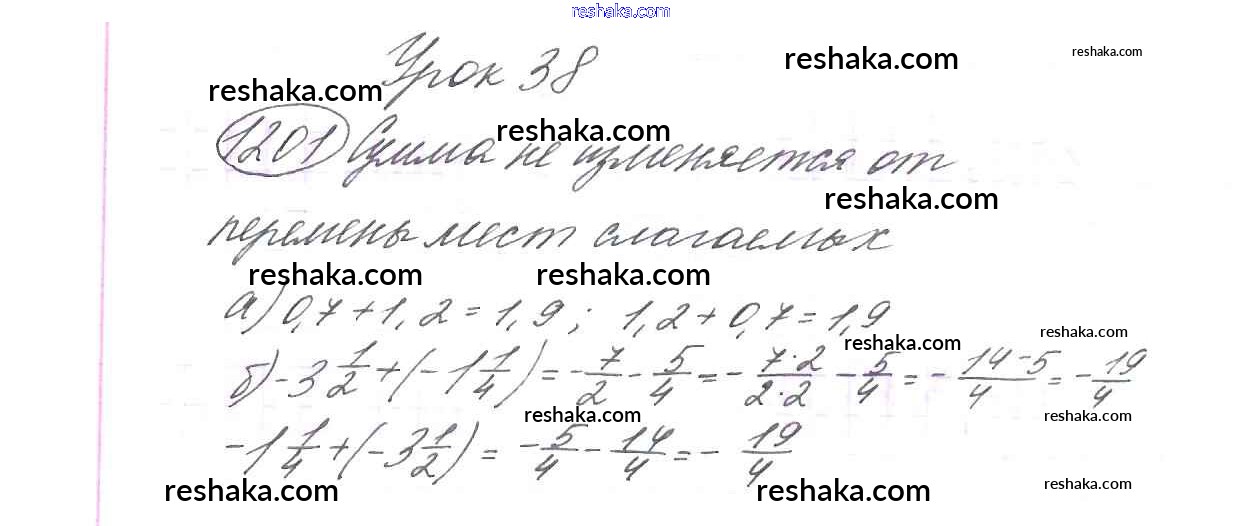 reshaka.com
Урок 38
reshaka.com
reshaka.com
reshaka.com
1201 Сумма не изменяется от
reshaka.com
reshaka.com
перемены мест слагаемых
reshaka.com
reshaka.com
а) 0,7 + 1,2 = 1,9 ; 1,2 + 0,7 = 1,9
reshaka.com
reshaka.com
б) -3 1/2 + (-1 1/4) = -7/2 - 5/4 = - 7·2/2·2 - 5/4 = - 14-5/4 = - 19/4
reshaka.com
reshaka.com
-1 1/4 + (-3 1/2) = -5/4 - 14/4 = - 19/4
reshaka.com
reshaka.com
reshaka.com